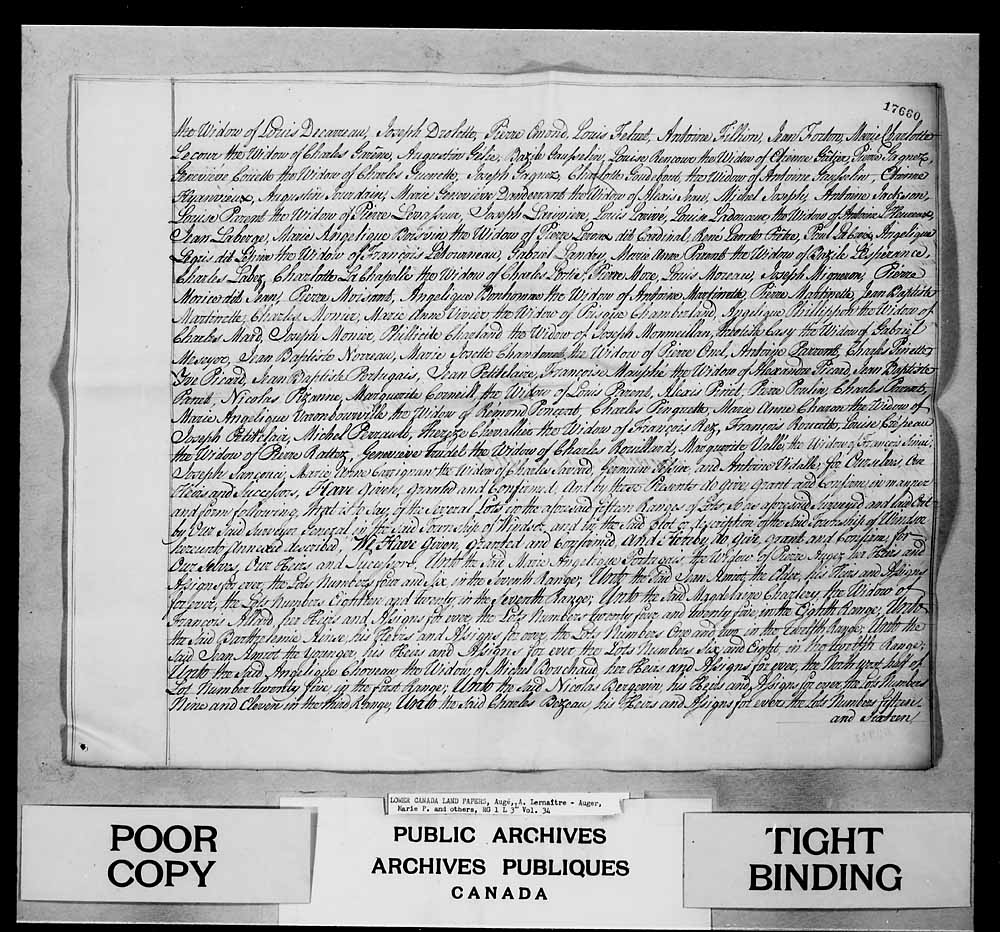 17660
the Widow of Louis Decarreau, Joseph Drolette, Pierre Emond, Louis Feluet, Antoine Fillion, Jean Forton, Marie Charlotte
Lecour the Widow of Charles Garème, Augustin Gelie, Bazile Gauselin, Louise Rencour the Widow of Etienne Gratza, Pierre Gagnez,
Genevieve Coisette the Widow of Charles Guenette, Joseph Gagnez, Charlotte Goudebout, the Widow of Antoine Gauselin, Etienne
Augustin Jourdain, Marie Genevieve Dandurant the Widow of Alexis Jean, Michel Joseph, Antoine Jackson,
Louise Parent the Widow of Pierre Levasseur, Joseph Lariviere, Louis Louvé, Louise Ladouceur the Widow of Antoine
Jean Laberge, Marie Angelique Boisvin the Widow of Pierre Loreau dit Cardinal, René Paul Angelique
Legris dit Lepine the Widow of François Letourneau, Gabriel Landry, Marie Anne Parent the Widow of Bazile L'Esperance,
Charles Labez, Charlotte La Chapelle the Widow of Charles Pierre More, Louis Moreau, Joseph Migneron, Pierre
Morice dit Jean, Pierre Moisant, Angelique Bonhomme the Widow of Antoine Martinette, Pierre Martinette, Jean Baptiste
Martinette, Charles Monier, Marie Anne Vivier the Widow of Prisque Chamberland, Angelique Phillippon the Widow of
Charles Mard, Joseph Monier, Phillicite Cleveland the Widow of Joseph Monmeillan, Casy the Widow of Gabriel
Masoyer, Jean Baptiste Norreau, Marie Josette Chandonnet, the Widow of Pierre Owel, Antoine Parront, Charles Pinette,
Ive Picard, Jean Baptiste Portugais, Jean Petitclaire, Françoise the Widow of Alexandre Picard, Jean Baptiste
Parrett, Nicolas Pezanne, Marguerite Corneill the Widow of Louis Parent, Alexis Pivet, Pierre Poulin, Charles Parrant,
Marie Angelique Varonbourville the Widow of Remond Penport, Charles Pinquette, Marie Anne Charon the Widow of
Joseph Petitclair, Michel Perrault, Therize Chevallier the Widow of François Rez, François Roucotte, Louise Crépeau
the Widow of Pierre Rattez, Genevieve Trudel the Widow of Charles Rouillard, Marguerite Valle, the Widow of François
Joseph Sancouci, Marie Anne Corrignan the Widow of Charles Savard, Germain and Antoine Vidalle, for Ourselves, Our
Heirs and Successors, Have Given, Granted and Confirmed, And by these Presents do Give, Grant and Confirm, in manner
and form following, that is to say, of the several Lots in the aforesaid fifteen Ranges of Lots so as aforesaid surveyed and laid Out
by Our said Surveyor General, in the said Township of Windsor, and in the said Plot or description of the said Township of Windsor
hereunto Annexed described, We Have Given, Granted and Confirmed, And Hereby do Give, grant and Confirm, for
Our Selves, Our Heirs and Successors, Unto the Said Marie Angelique Portugais, the Widow of Pierre Augez, her Heirs and
Assigns for ever, the Lots Numbers four and Six, in the Seventh Range; Unto the said Jean Amiot, the Elder, his Heirs and Assigns
for ever, the Lots Numbers Eighteen and twenty, in the Seventh Range; Unto the Said Magdelaine Charlery the Widow of
François Allard, her Heirs and Assigns for ever, the Lots Numbers twenty four and twenty five, in the Eighth Range; Unto
the Said Barthelemie Ainse, his Heirs and Assigns for ever, the Lots Numbers One and two, in the twelfth Range; Unto the
Said Jean Amiot the Younger, his Heirs and Assigns for ever the Lots Numbers Six and Eight, in the Range;
Unto the Said Angelique Thomas the Widow of Michel Bouchaud, her Heirs and Assigns for ever, the North west half of
Lot Number twenty five, in the first Range; Unto the Said Nicolas Bergevin, his Heirs and Assigns for ever, the Lots Numbers
Nine and Eleven in the third Range; Unto the Said Charles Bezeau, his Heirs and Assigns for ever, the Lots Numbers fifteen
and Sixteen,
LOWER CANADA LAND PAPERS, Augé, A. Lemaître - Auger,
Marie P. and others, RG 1 L 3L Vol. 34
POOR
COPY
PUBLIC ARCHIVES
ARCHIVES PUBLIQUES
CANADA
TIGHT
BINDING